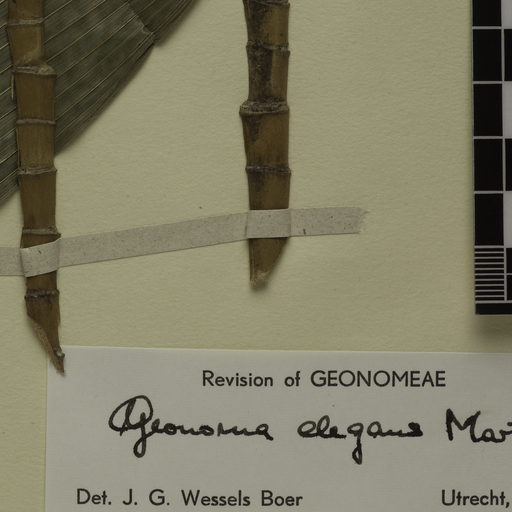 Revision of GEONOMEAE
Geonoma elegans Mar
Det. J. G. Wessels Boer
Utrecht,